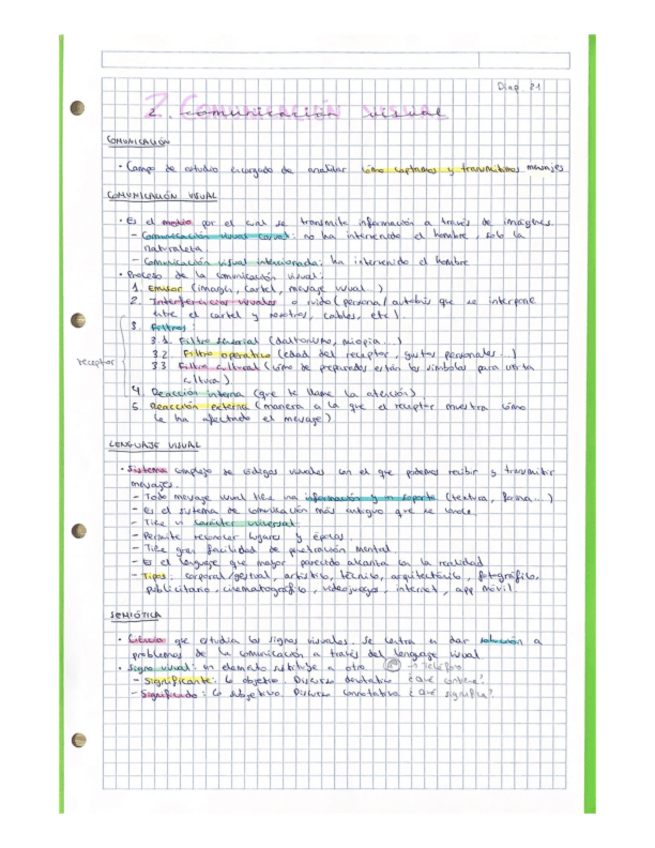 Diap. 21
2. comunicación visual
COMUNICACIÓN
· Campo de estudio encargado de analizar cómo captamos y transmitimos mensajes
COMUNICACIÓN VISUAL
· Es el medio por el cual se transmite información a través de imágenes.
- Comunicación visual casual: no ha intervenido el hombre, solo la
naturaleza
- Comunicación visual intencionada: ha intervenido el hombre
· Proceso de la comunicación visual:
1. Emisor (imagen, cartel, mensaje visual..)
2. Interferencias visuales o ruido (persona/autobús que se interpone
entre el cartel y nosotros, cables, etc)
3. Filtros:
3.1 Filtro sensorial (daltonismo, miopía...)
3.2 Filtro operativo (edad del receptor, gustos personales...)
receptor
3.3 Filtro cultural (cómo de preparados están los símbolos para
cultura)
4. Reacción interna (que te llame la atención)
5. Reacción externa (manera a la que el receptor muestra cómo
le ha afectado el mensaje)
LENGUAJE VISUAL
· Sistema complejo de códigos visuales con el que podemos recibir y transmitir
mensajes.
- Todo mensaje visual tiene una información y un soporte (textura, forma...)
- Es el sistema de comunicación más antiguo que se conoce.
- Tiene un carácter universal
- Permite reconocer lugares y épocas.
- Tiene gran facilidad de penetración mental.
- Es el lenguaje que mayor parecido alcanza con la realidad
- Tipos: corporal/gestual, artístico, técnico, arquitectónico, fotográfico,
publicitario, cinematográfico, videojuegos, internet, app móvil.
SEMIÓTICA
· Ciencia que estudia los signos visuales. Se centra en dar solución a
problemas de la comunicación a través del lenguaje visual.
· Signo visual: un elemento sustituye a otro. → Teléfono
- Significante: lo objetivo. Discurso denotativo ¿Qué contiene?
- Significado: lo subjetivo. Discurso connotativo ¿Qué significa?